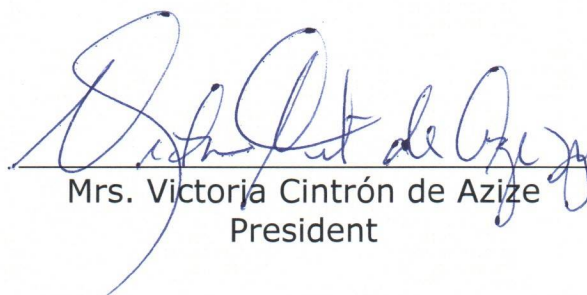 Mrs. Victoria Cintrón de Azize
President